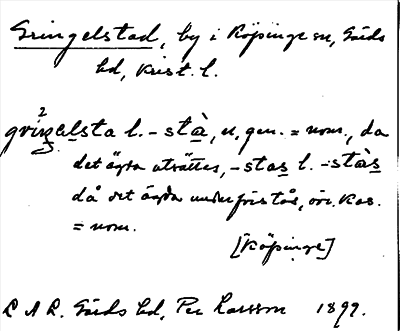 Gringelstad, by i Köpinge sn, Gärds
hd, Krist. l.
2
gringelsta l. -stà, n, gen. = nom., då
det ägda utsättes, -stas l. -stàs
då det ägda underförstås, övr. kas.
= nom.
[Köpinge]
L A L. Gärds hd, Per Larsson 1899.